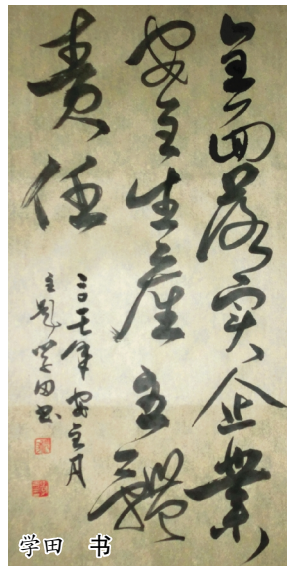 全面落实企業
安全生産主體
责任
二〇一七年安全月
主题学田书
学田 书